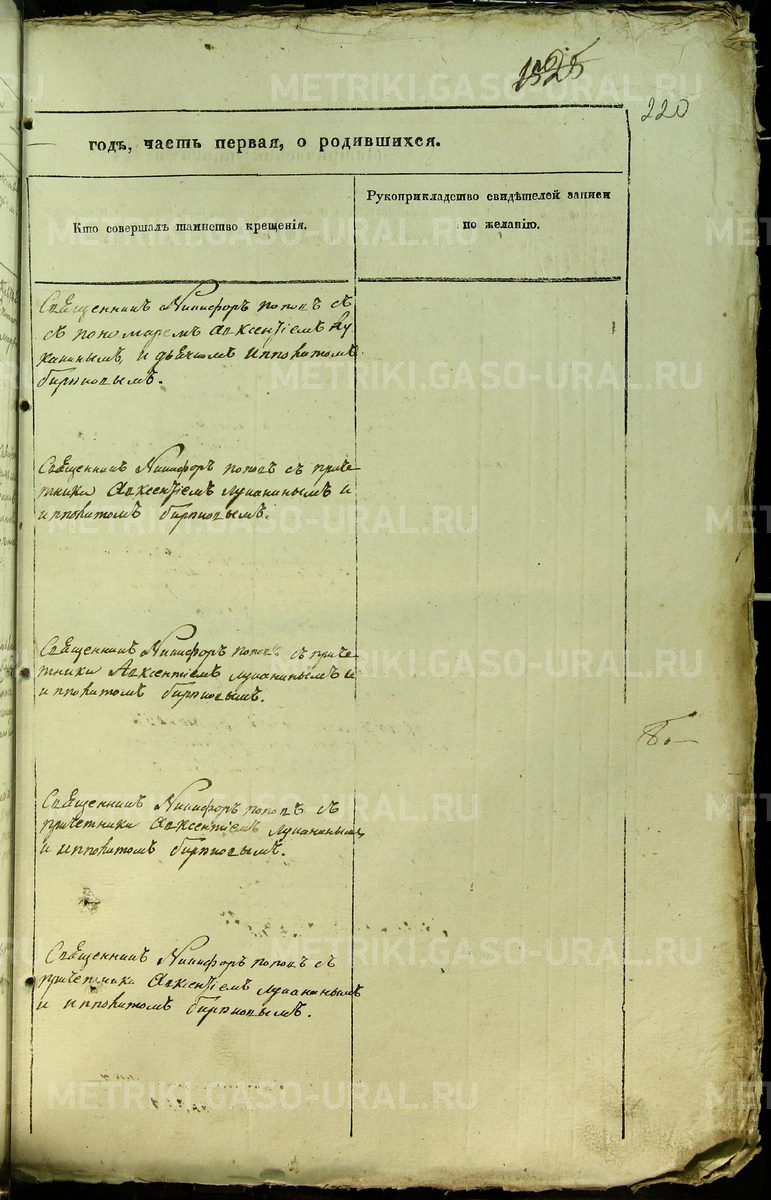 220
годъ, часть первая, о родившихся.
Кто совершалъ таинство крещенія.
Рукоприкладство свидѣтелей записи
по желанію.
Священникъ Никифоръ поповъ съ
съ пономаремъ Авксентіемъ Лу
канинымъ, и дьячкомъ Ипполитомъ
Священникъ Никифоръ поповъ съ приче-
тники Авксентіемъ Луканинымъ и
ипполитомъ
Священникъ Никифоръ поповъ съ приче-
тники Авксентіемъ Луканинымъ и
ипполитомъ
Священникъ Никифоръ поповъ съ
причетники Авксентіемъ Луканинымъ
и ипполитомъ
Священникъ Никифоръ поповъ съ
причетники Авксентіемъ Луканинымъ
и ипполитомъ
METRIKI.GASO-URAL.RU